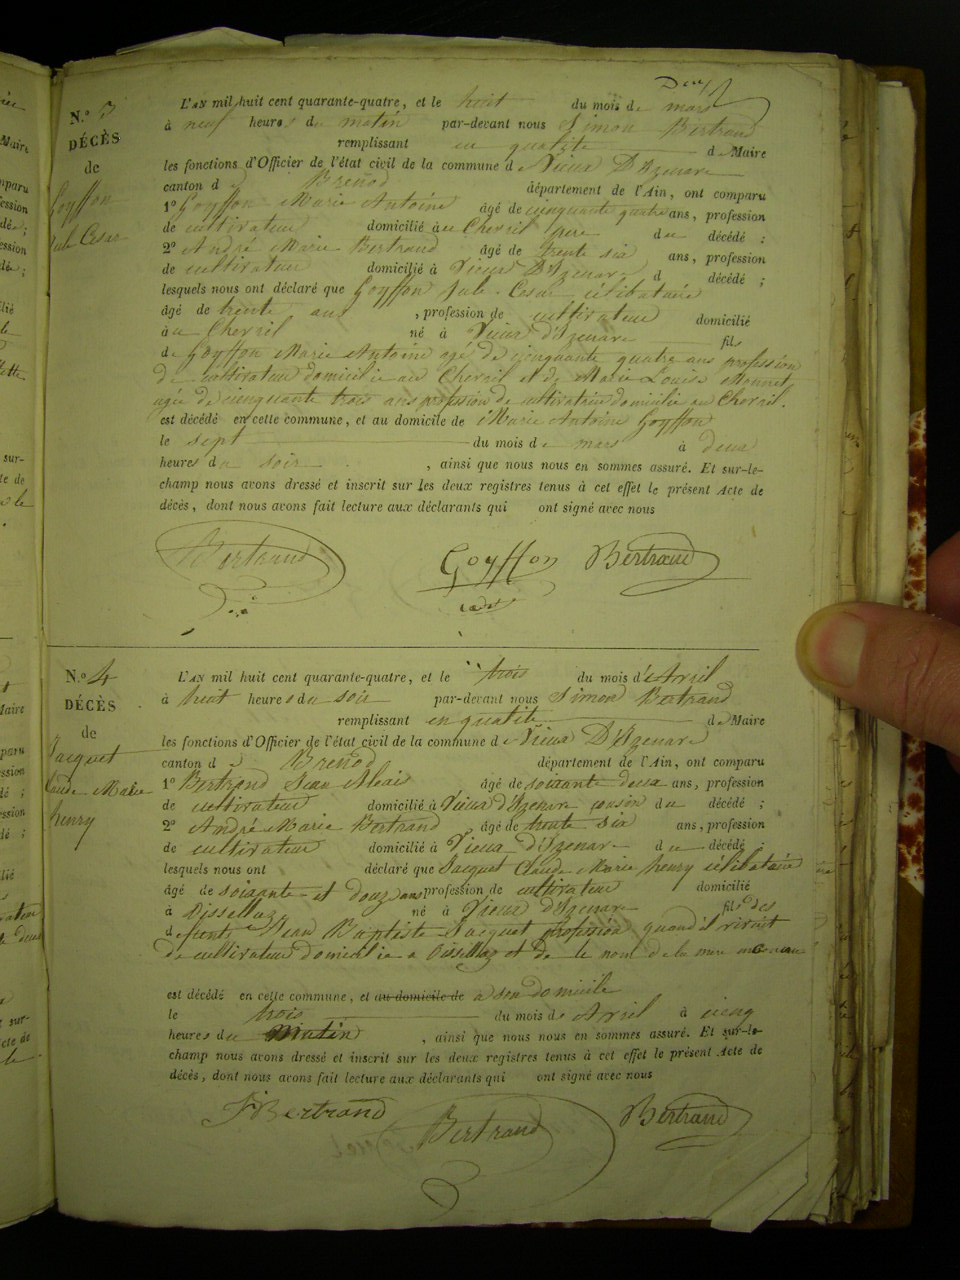 N.º 3
DÉCÈS
de
Goyffon
Jule Cesar
L'AN mil huit cent quarante-quatre, et le huit du mois de mars
à neuf heures du matin par-devant nous Simon Bertrand
remplissant en qualité de Maire
les fonctions d'Officier de l'état civil de la commune de Vieux D'Izenave
canton de Brenod département de l'Ain, ont comparu
1º Goyffon Marie Antoine âgé de cinquante quatre ans, profession
de cultivateur domicilié au Chevril pere du décédé ;
2º André Marie Bertrand âgé de trente six ans, profession
de cultivateur domicilié à Vieux D'Izenave d décédé ;
lesquels nous ont déclaré que Goyffon Jule Cesar célibataire
âgé de trente ans , profession de cultivateur domicilié
à au Chevril né à Vieux d'Izenave fils
de Goyffon Marie Antoine agé de cinquante quatre ans profession
de cultivateur domicilie au Chevril et de Marie Louise Monnet
agée de cinquante trois ans profession de cultivateur domicilie au Chevril.
est décédé en cette commune, et au domicile de Marie Antoine Goyffon
le sept du mois de mars à deux
heures du soir , ainsi que nous nous en sommes assuré. Et sur-le-
champ nous avons dressé et inscrit sur les deux registres tenus à cet effet le présent Acte de
décès, dont nous avons fait lecture aux déclarants qui ont signé avec nous
Bertrand Goyffon Bertrand
N.º 4
DÉCÈS
de
Jacquet
Claude Marie
henry
L'AN mil huit cent quarante-quatre, et le trois du mois d'Avril
à huit heures du soir par-devant nous Simon Bertrand
remplissant en qualité de Maire
les fonctions d'Officier de l'état civil de la commune de Vieux D'Izenave
canton de Brenod département de l'Ain, ont comparu
1º Bertrand Jean âgé de soixante deux ans, profession
de cultivateur domicilié à Vieux d'Izenave cousin du décédé ;
2º André Marie Bertrand âgé de trente six ans, profession
de cultivateur domicilié à Vieux d'Izenave d décédé ;
lesquels nous ont déclaré que Jacquet Claude Marie henry célibataire
âgé de soixante et douz ans profession de cultivateur domicilié
à Oisellaz né à Vieux d'Izenave fils des
defunt Jean Baptiste Jacquet profession quand il vivait
de cultivateur domicilie a Oisellaz et de le nom de la mère
est décédé en cette commune, et au domicile de a son domicile
le trois du mois de Avril à cinq
heures du Matin , ainsi que nous nous en sommes assuré. Et sur-le-
champ nous avons dressé et inscrit sur les deux registres tenus à cet effet le présent Acte de
décès, dont nous avons fait lecture aux déclarants qui ont signé avec nous
J Bertrand Bertrand Bertrand